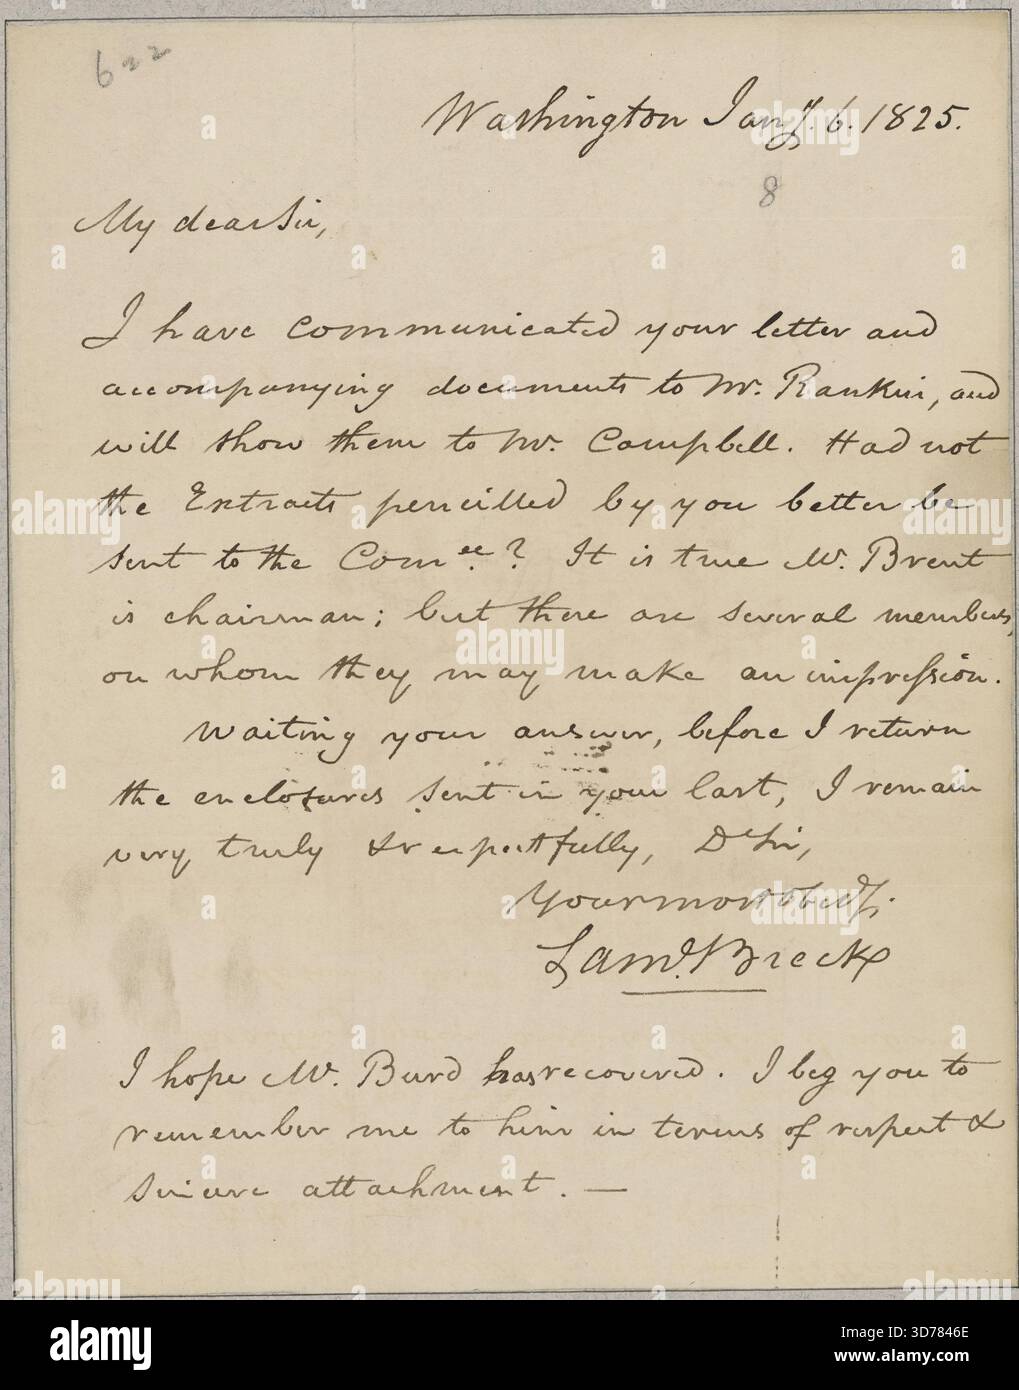 622
Washington Jany. 6. 1825.
8
My dear Sir,
I have communicated your letter and
accompanying documents to Mr. Rankin, and
will show them to Mr. Campbell. Had not
the Extracts pencilled by you better be
sent to the Comee.? It is true Mr. Brent
is chairman; but there are several members,
on whom they may make an impression.
Waiting your answer, before I return
the enclosures sent in your last, I remain
very truly & respectfully, Dr Sir,
Your most obedt.
Saml. Breck
I hope Mr. Burd has recovered. I beg you to
remember me to him in terms of respect &
sincere attachment. —
alamy
Image ID: 3D7846E
www.alamy.com